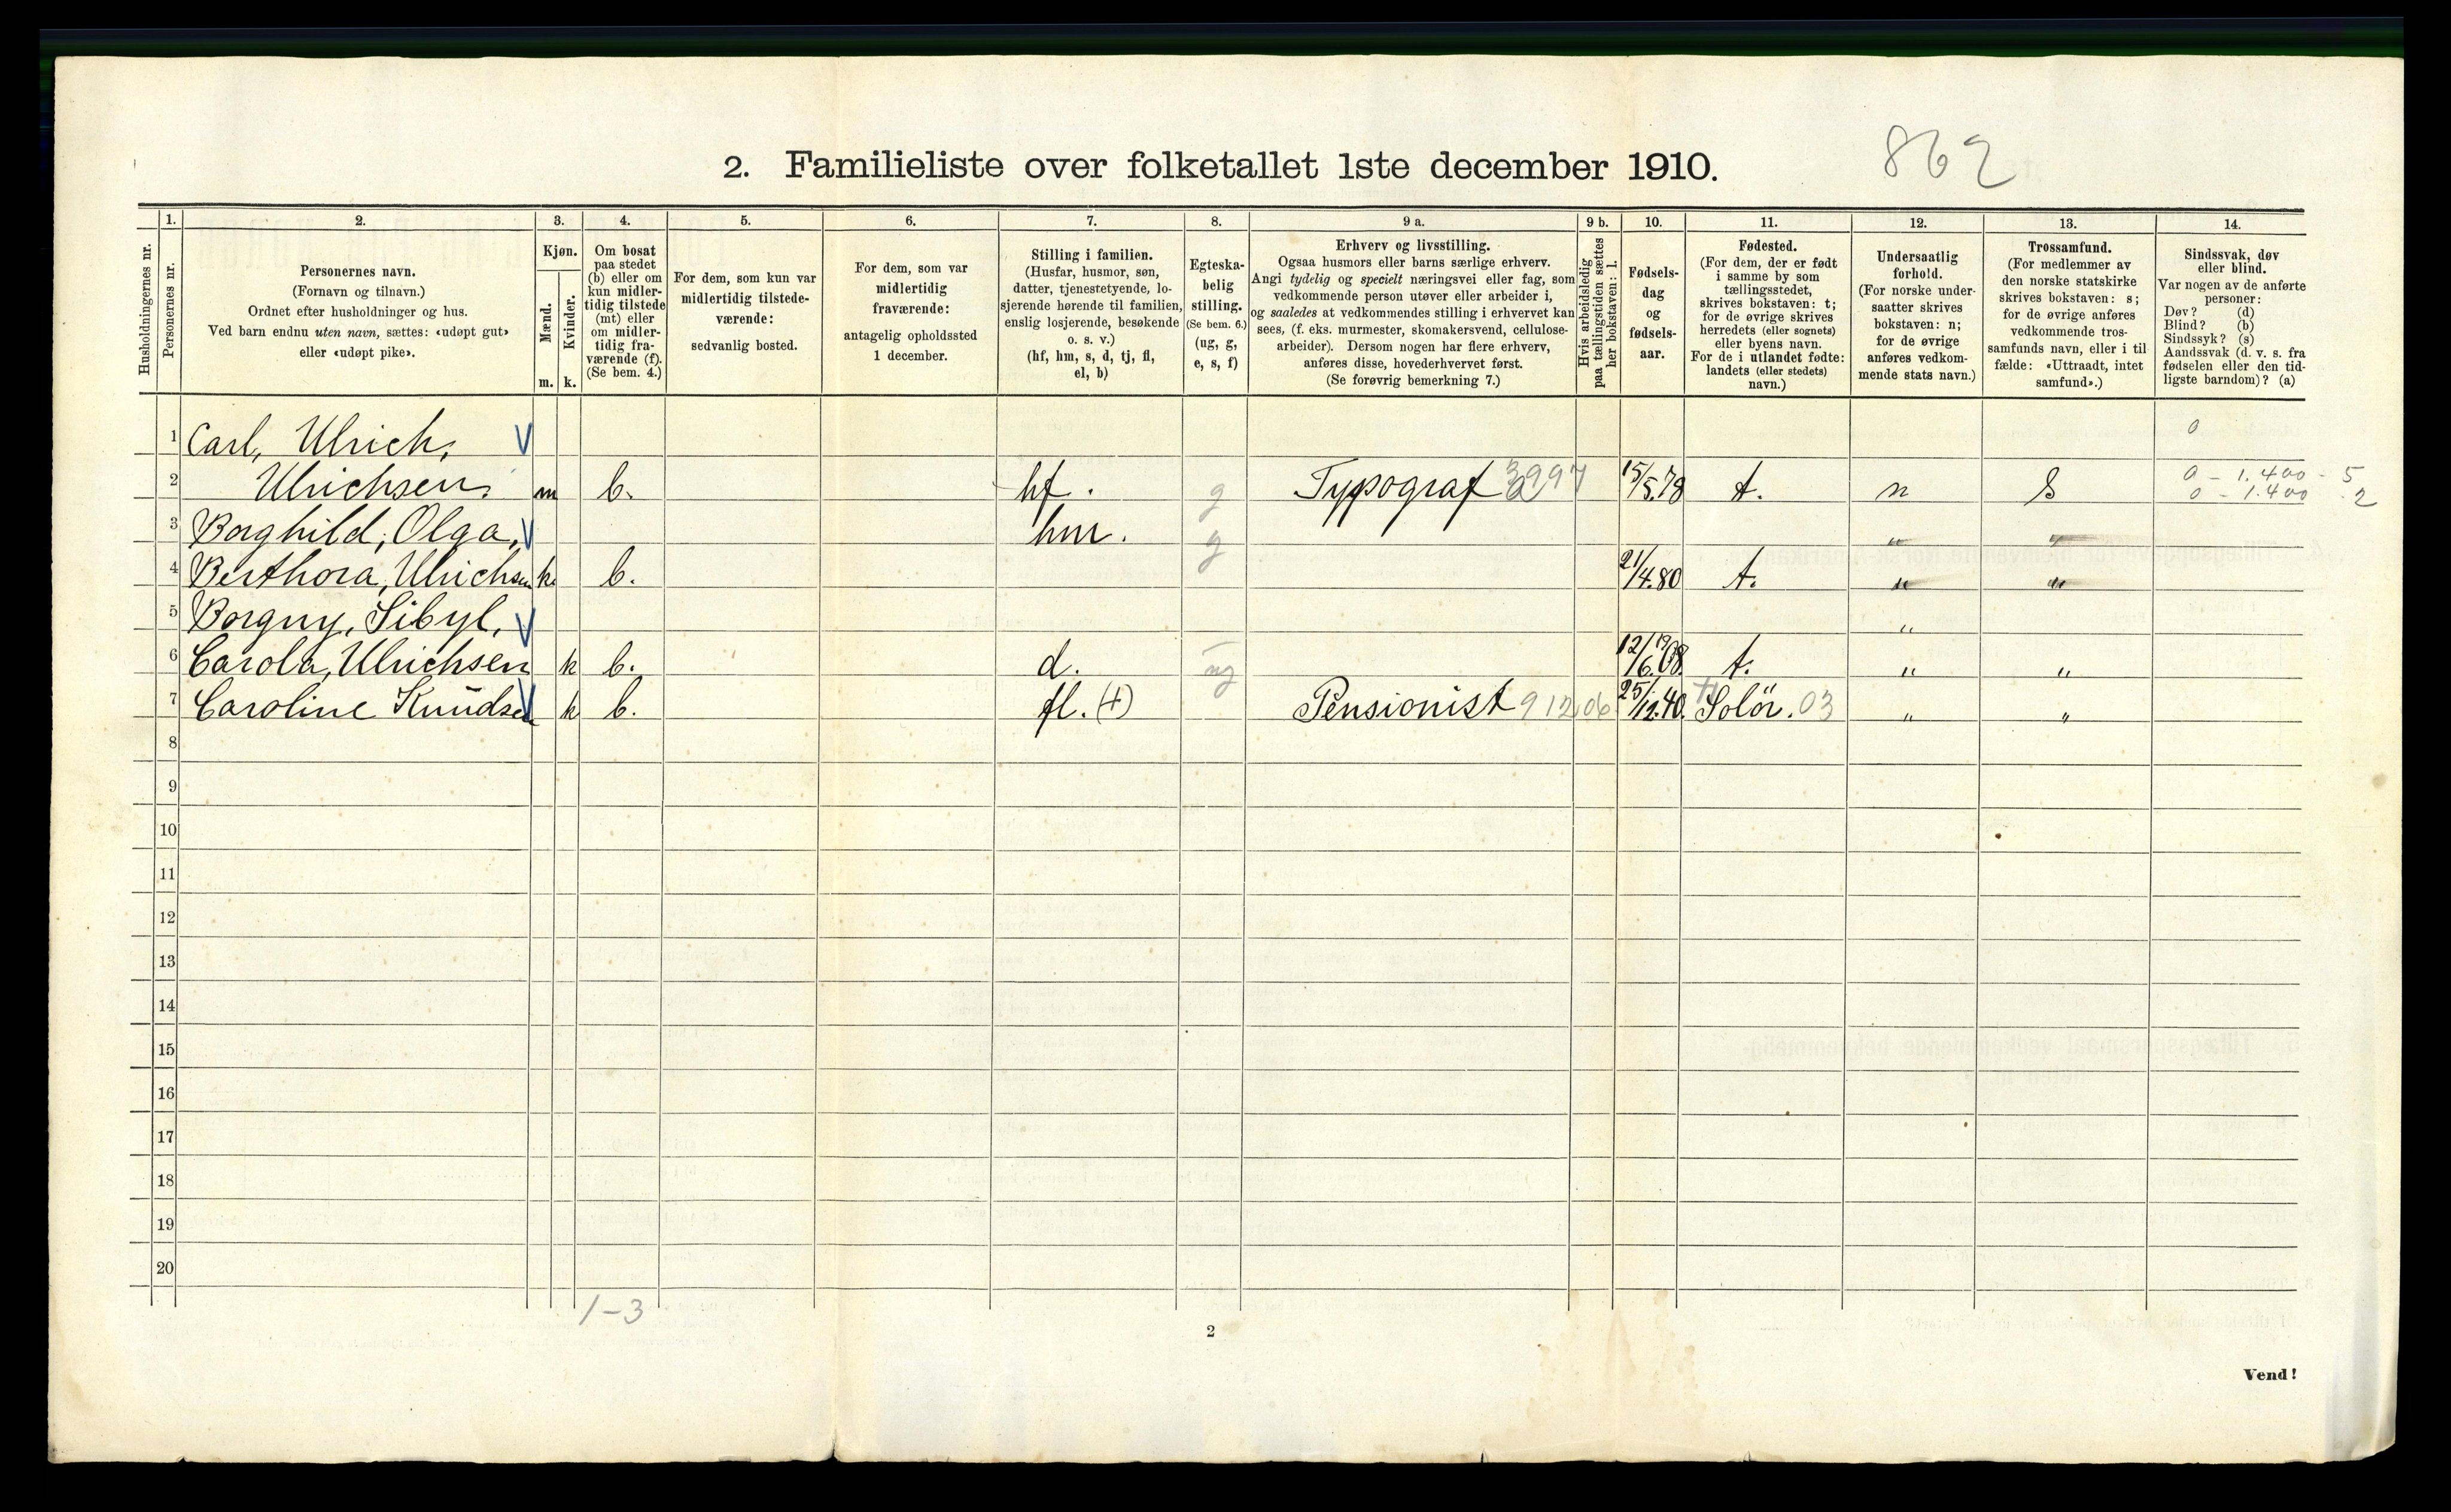 2. Familieliste over folketallet 1ste december 1910.
862
Husholdningernes nr.
1.
Personernes nr.
2.
Personernes navn.
(Fornavn og tilnavn.)
Ordnet efter husholdninger og hus.
Ved barn endnu uten navn, sættes: «udøpt gut»
eller «udøpt pike».
3.
Kjøn.
Mænd.
Kvinder.
m.
k.
4.
Om bosat
paa stedet
(b) eller om
kun midler-
tidig tilstede
(mt) eller
om midler-
tidig fra-
værende (f).
(Se bem. 4.)
5.
For dem, som kun var
midlertidig tilstede-
værende:
sedvanlig bosted.
6.
For dem, som var
midlertidig
fraværende:
antagelig opholdssted
1 december.
7.
Stilling i familien.
(Husfar, husmor, søn,
datter, tjenestetyende, lo-
sjerende hørende til familien,
enslig losjerende, besøkende
o. s. v.)
(hf, hm, s, d, tj, fl,
el, b)
8.
Egteska-
belig
stilling.
(Se bem. 6.)
(ug, g,
e, s, f)
9 a.
Erhverv og livsstilling.
Ogsaa husmors eller barns særlige erhverv.
Angi tydelig og specielt næringsvei eller fag, som
vedkommende person utøver eller arbeider i,
og saaledes at vedkommendes stilling i erhvervet kan
sees, (f. eks. murmester, skomakersvend, cellulose-
arbeider). Dersom nogen har flere erhverv,
anføres disse, hovederhvervet først.
(Se forøvrig bemerkning 7.)
9 b.
Hvis arbeidsledig
paa tællingstiden sættes
her bokstaven: l.
10.
Fødsels-
dag
og
fødsels-
aar.
11.
Fødested.
(For dem, der er født
i samme by som
tællingsstedet,
skrives bokstaven: t;
for de øvrige skrives
herredets (eller sognets)
eller byens navn.
For de i utlandet fødte:
landets (eller stedets)
navn.)
12.
Undersaatlig
forhold.
(For norske under-
saatter skrives
bokstaven: n;
for de øvrige
anføres vedkom-
mende stats navn.)
13.
Trossamfund.
(For medlemmer av
den norske statskirke
skrives bokstaven: s;
for de øvrige anføres
vedkommende tros-
samfunds navn, eller i til-
fælde: «Uttraadt, intet
samfund».)
14.
Sindssvak, døv
eller blind.
Var nogen av de anførte
personer:
Døv? (d)
Blind? (b)
Sindssyk? (s)
Aandssvak (d. v. s. fra
fødselen eller den tid-
ligste barndom)? (a)
1 Carl, Ulrich, V 0
2 Ulrichsen. m b. hf. g Typograf 15/5.78 t. n S 0 - 1.400 - 5
0 - 1.400 - 2
3 Borghild, Olga, V hm. g " "
4 Berthora, Ulrichsen k b. 21/4.80 t. " "
5 Borguy, Sibyl, V "
6 Carola, Ulrichsen k b. d. ug 12/6.1908. t. " "
7 Caroline Knudsen V k b. fl. (+) Pensionist 91206 25/12.40. Solör. 03 " "
8
9
10
11
12
13
14
15
16
17
18
19
20
1-3
2
Vend!